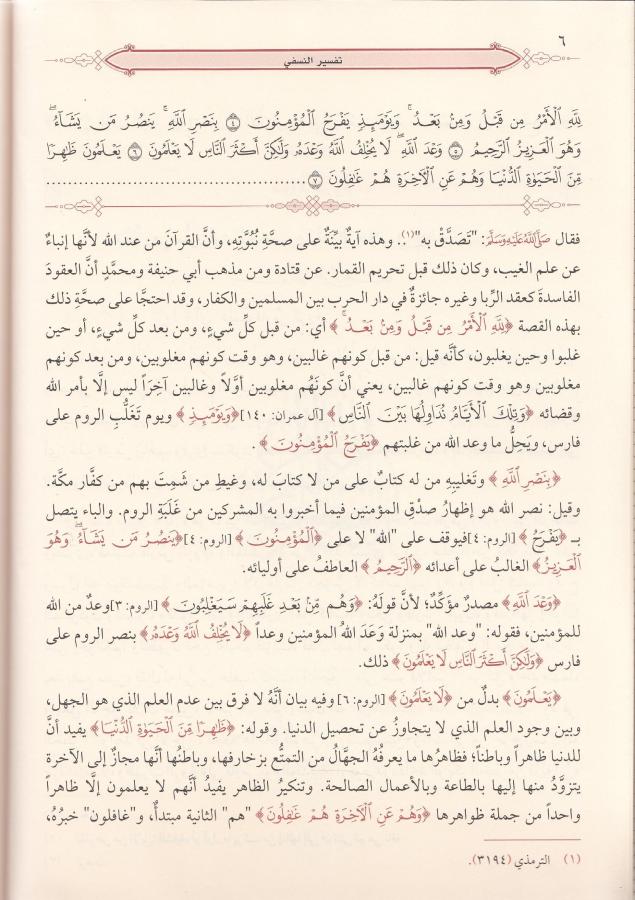 ٦
تفسير النسفي
لِلَّهِ الْأَمْرُ مِن قَبْلُ وَمِنْ بَعْدُ ۚ وَيَوْمَئِذٍ يَفْرَحُ الْمُؤْمِنُونَ ﴿٤﴾ بِنَصْرِ اللَّهِ ۚ يَنصُرُ مَن يَشَاءُ ۖ
وَهُوَ الْعَزِيزُ الرَّحِيمُ ﴿٥﴾ وَعْدَ اللَّهِ ۖ لَا يُخْلِفُ اللَّهُ وَعْدَهُ وَلَٰكِنَّ أَكْثَرَ النَّاسِ لَا يَعْلَمُونَ ﴿٦﴾ يَعْلَمُونَ ظَٰهِرًا
مِّنَ الْحَيَوٰةِ الدُّنْيَا وَهُمْ عَنِ الْآخِرَةِ هُمْ غَٰفِلُونَ ﴿٧﴾ ......................................
فقال ﷺ: "تَصَدَّقْ به"(١).. وهذه آيةٌ بيِّنَةٌ على صحَّةِ نُبُوَّتِهِ، وأنَّ القرآنَ من عند الله لأنَّها إنباءٌ
عن علم الغيب، وكان ذلك قبل تحريم القمار. عن قتادة ومن مذهب أبي حنيفة ومحمَّدٍ أنَّ العقودَ
الفاسدةَ كعقد الرِّبا وغيره جائزةٌ في دار الحرب بين المسلمين والكفار، وقد احتجَّا على صحَّةِ ذلك
بهذه القصة ﴿لِلَّهِ الْأَمْرُ مِن قَبْلُ وَمِنْ بَعْدُ ۚ﴾ أي: من قبل كلِّ شيءٍ، ومن بعد كلِّ شيءٍ، أو حين
غلبوا وحين يغلبون، كأنَّه قيل: من قبل كونهم غالبين، وهو وقت كونهم مغلوبين، ومن بعد كونهم
مغلوبين وهو وقت كونهم غالبين، يعني أنَّ كونَهُم مغلوبين أوَّلاً وغالبين آخِرَاً ليس إلَّا بأمر الله
وقضائه ﴿وَتِلْكَ الْأَيَّامُ نُدَاوِلُهَا بَيْنَ النَّاسِ﴾ [آل عمران: ١٤٠] ﴿وَيَوْمَئِذٍ﴾ ويوم تَغَلُّبِ الروم على
فارس، ويَحِلُّ ما وعد الله من غلبتهم ﴿يَفْرَحُ الْمُؤْمِنُونَ﴾.
﴿بِنَصْرِ اللَّهِ﴾ وتغليبِهِ من له كتابٌ على من لا كتابَ له، وغيطِ من شَمِتَ بهم من كفَّار مكَّة.
وقيل: نصر الله هو إظهارُ صدْقِ المؤمنين فيما أخبروا به المشركين من غَلَبَةِ الروم. والباء يتصل
بـ ﴿يَفْرَحُ﴾ [الروم: ٤] فيوقف على "الله" لا على ﴿الْمُؤْمِنُونَ﴾ [الروم: ٤] ﴿يَنصُرُ مَن يَشَاءُ ۖ وَهُوَ
الْعَزِيزُ﴾ الغالبُ على أعدائه ﴿الرَّحِيمُ﴾ العاطفُ على أوليائه.
﴿وَعْدَ اللَّهِ﴾ مصدرٌ مؤكِّدٌ؛ لأنَّ قولَهُ: ﴿وَهُم مِّنْ بَعْدِ غَلَبِهِمْ سَيَغْلِبُونَ﴾ [الروم: ٣] وعدٌ من الله
للمؤمنين، فقوله: "وعد الله" بمنزلة وَعَدَ اللهُ المؤمنين وعداً ﴿لَا يُخْلِفُ اللَّهُ وَعْدَهُ﴾ بنصر الروم على
فارس ﴿وَلَٰكِنَّ أَكْثَرَ النَّاسِ لَا يَعْلَمُونَ﴾ ذلك.
﴿يَعْلَمُونَ﴾ بدلٌ من ﴿لَا يَعْلَمُونَ﴾ [الروم: ٦] وفيه بيان أنَّهُ لا فرق بين عدم العلم الذي هو الجهل،
وبين وجود العلم الذي لا يتجاوزُ عن تحصيل الدنيا. وقوله: ﴿ظَٰهِرًا مِّنَ الْحَيَوٰةِ الدُّنْيَا﴾ يفيد أنَّ
للدنيا ظاهراً وباطناً؛ فظاهرُها ما يعرفُهُ الجهَّالُ من التمتُّع بزخارفها، وباطنُها أنَّها مجازٌ إلى الآخرة
يتزوَّدُ منها إليها بالطاعة وبالأعمال الصالحة. وتنكيرُ الظاهر يفيدُ أنَّهم لا يعلمون إلَّا ظاهراً
واحداً من جملة ظواهرها ﴿وَهُمْ عَنِ الْآخِرَةِ هُمْ غَٰفِلُونَ﴾ "هم" الثانية مبتدأٌ، و"غافلون" خبرُهُ،
(١) الترمذي (٣١٩٤).